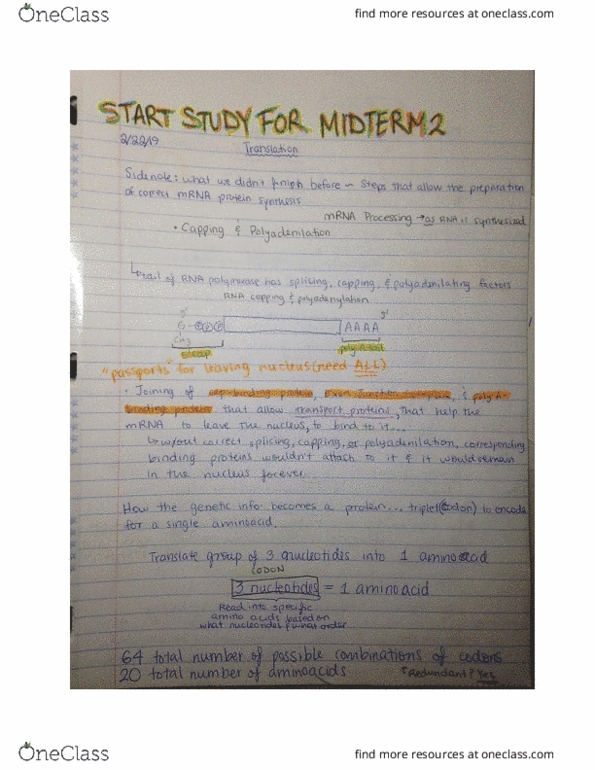 OneClass
find more resources at oneclass.com
START STUDY FOR MIDTERM 2
2/22/19
Translation
Sidenote: what we didn't finish before - Steps that allow the preparation
of correct mRNA protein synthesis
mRNA Processing → as RNA is synthesized
• Capping & Polyadenilation
tail of RNA polymerase has splicing, capping, & polyadenilating factors
RNA capping & polyadenylation
5' 3'
G-PPP AAAA
CH3
5'cap poly-A tail
"passports" for leaving nucleus (need ALL)
• Joining of cap-binding protein, Exon junction complex, & poly-A-
binding proteins that allow transport proteins, that help the
mRNA to leave the nucleus, to bind to it...
w/out correct splicing, capping, or polyadenilation, corresponding
binding proteins wouldn't attach to it & it would remain
in the nucleus forever
How the genetic info becomes a protein... triplet (codon) to encode
for a single aminoacid.
Translate group of 3 nucleotides into 1 aminoacid
CODON
3 nucleotides = 1 aminoacid
Read into specific
amino acids based on
what nucleotides & what order
64 total number of possible combinations of codons
20 total number of aminoacids *Redundant? Yes
OneClass
find more resources at oneclass.com